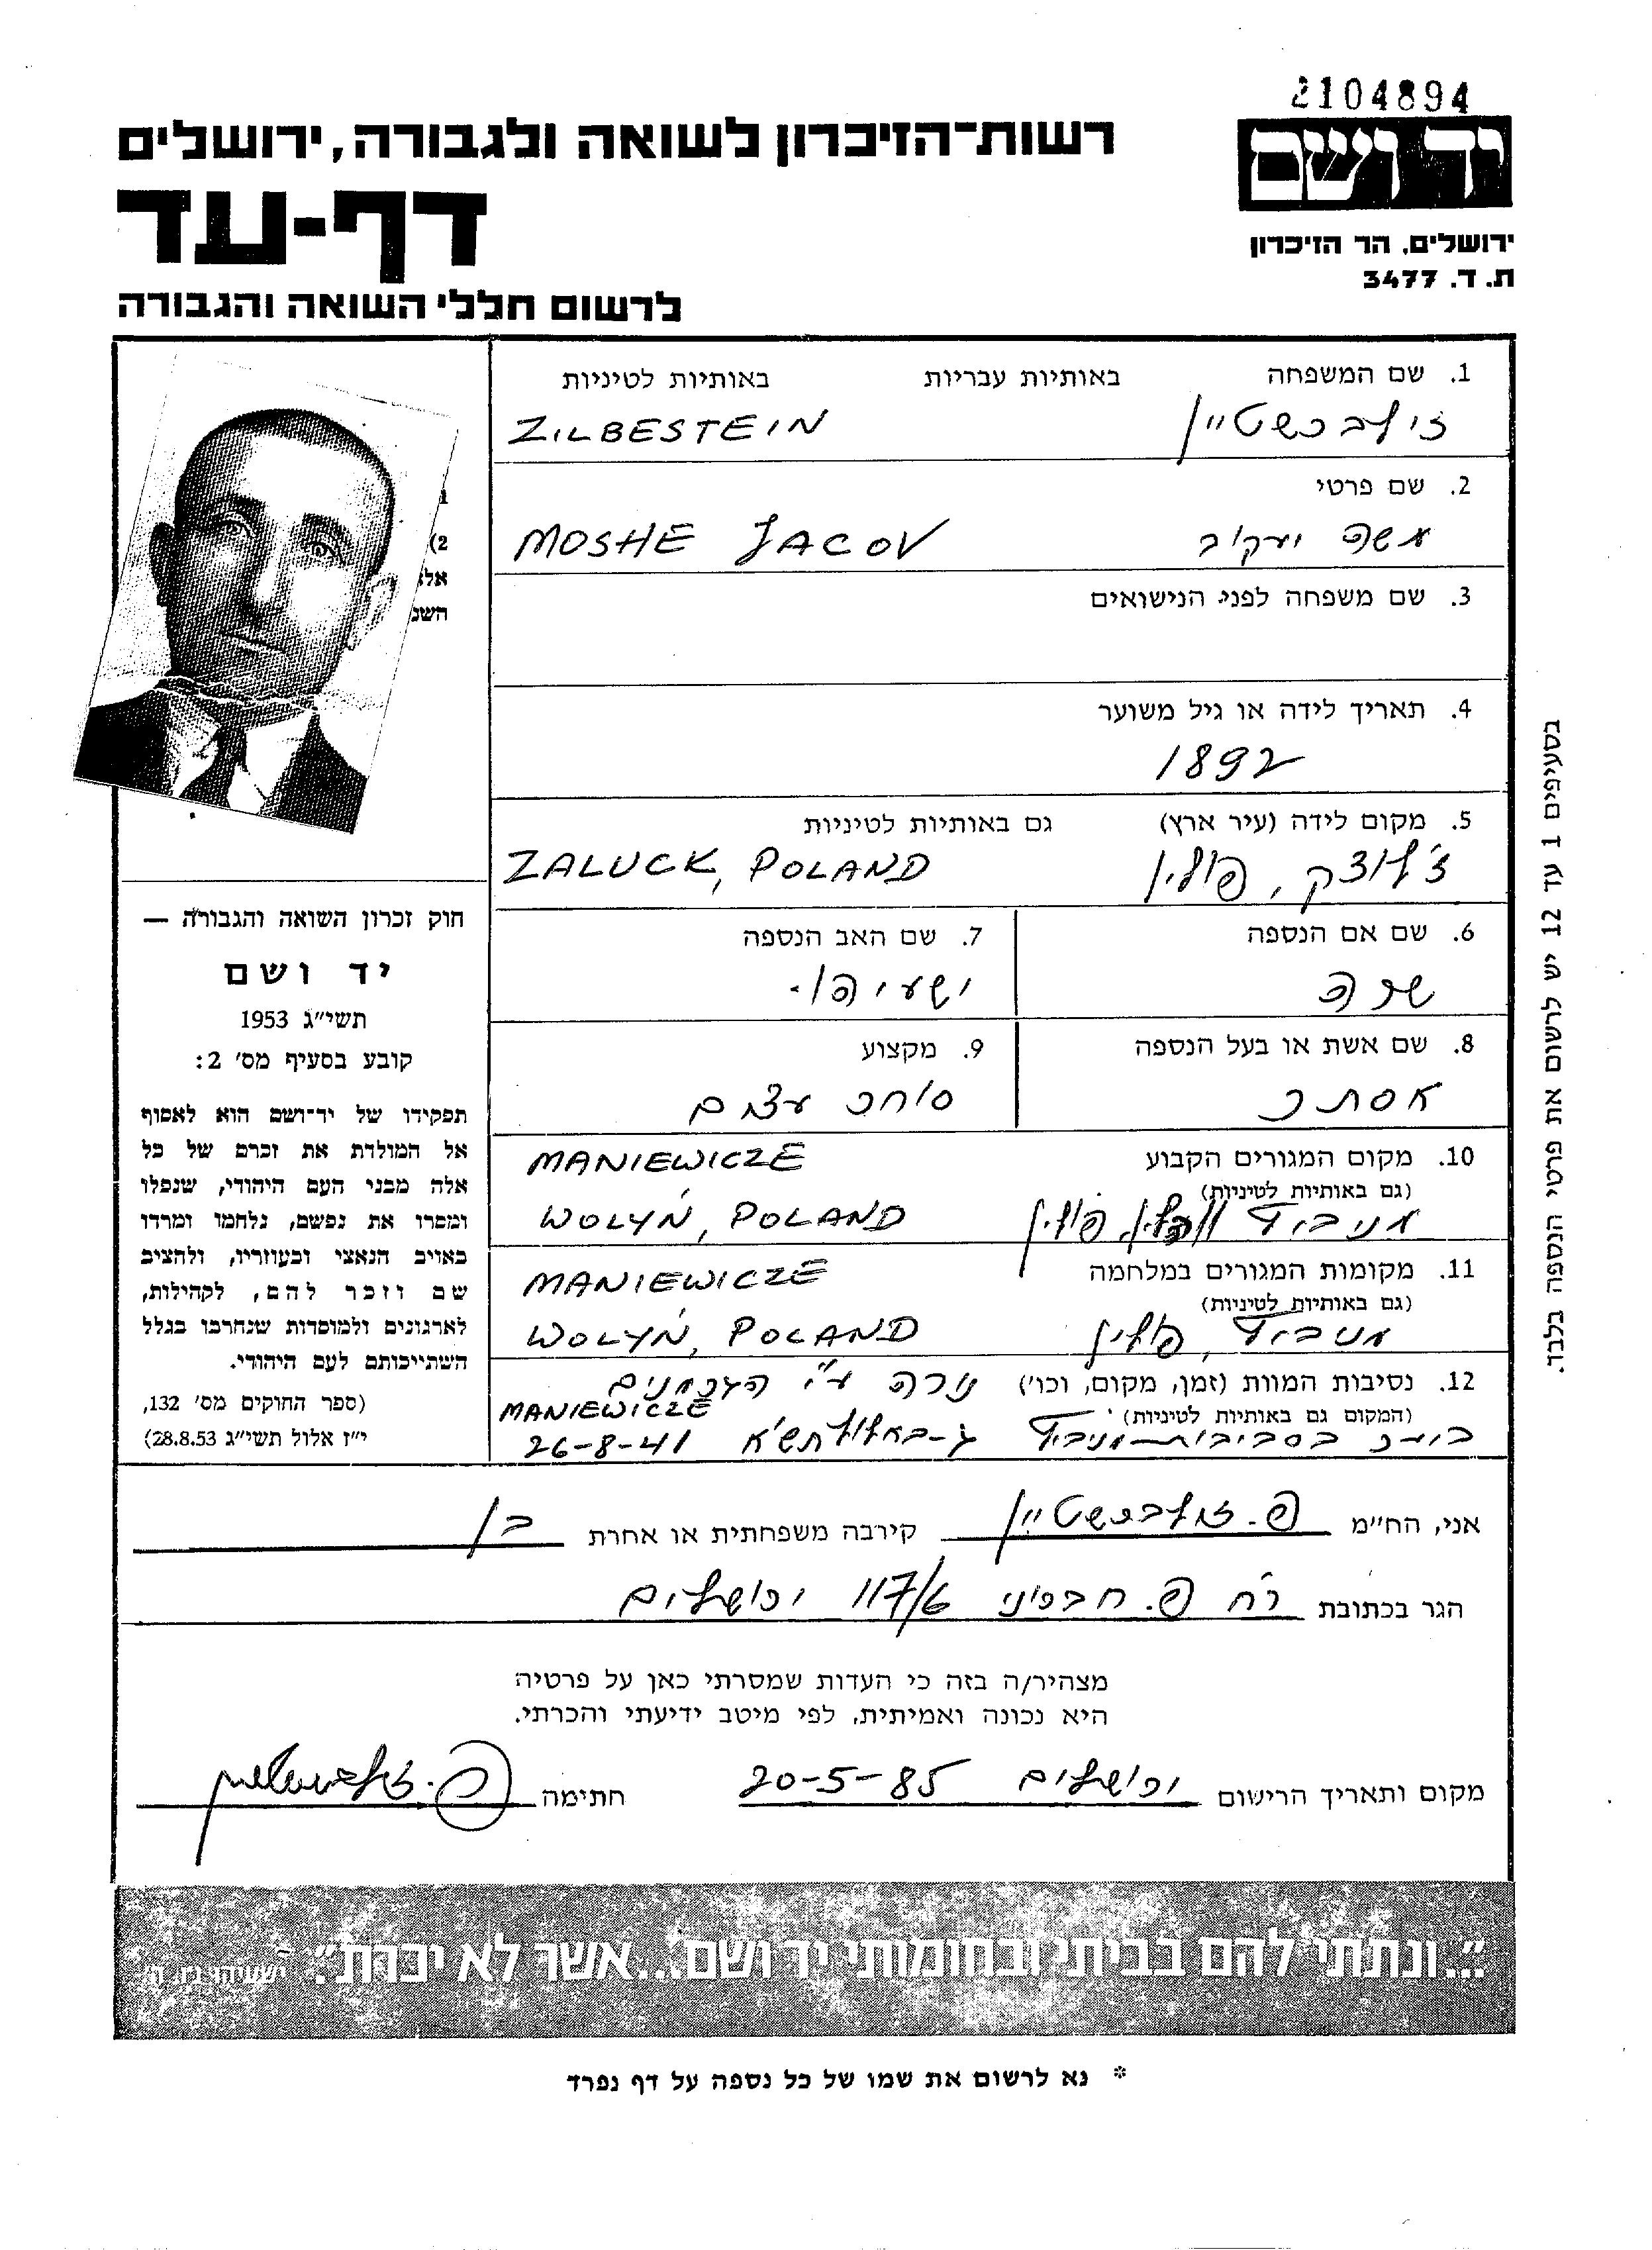 2104894
יד ושם
רשות־הזיכרון לשואה ולגבורה, ירושלים
דף-עד
ירושלים, הר הזיכרון
ת. ד. 3477
לרשום חללי השואה והגבורה
1. שם המשפחה באותיות עבריות באותיות לטיניות
זילברשטיין ZILBESTEIN
2. שם פרטי
משה יעקוב MOSHE JACOV
3. שם משפחה לפני הנישואים
4. תאריך לידה או גיל משוער
1892
5. מקום לידה (עיר ארץ) גם באותיות לטיניות
ז'לוצק, פולין ZALUCK, POLAND
6. שם אם הנספה 7. שם האב הנספה
שרה ישעיהו
8. שם אשת או בעל הנספה 9. מקצוע
אסתר סוחר עצים
10. מקום המגורים הקבוע MANIEWICZE
(גם באותיות לטיניות)
מניביץ' ווהלין, פולין WOLYŃ, POLAND
11. מקומות המגורים במלחמה MANIEWICZE
(גם באותיות לטיניות)
מניביץ', פולין WOLYŃ, POLAND
12. נסיבות המוות (זמן, מקום, וכו') נורה ע"י הגרמנים
(המקום גם באותיות לטיניות) MANIEWICZE
בסביבות מניביץ' ג-באלול תש'א 26-8-41
1
2)
אלא
השנ
חוק זכרון השואה והגבורה —
יד ושם
תשי״ג 1953
קובע בסעיף מס׳ 2:
תפקידו של יד־ושם הוא לאסוף
אל המולדת את זכרם של כל
אלה מבני העם היהודי, שנפלו
ומסרו את נפשם, נלחמו ומרדו
באויב הנאצי ובעוזריו, ולהציב
שם וזכר להם, לקהילות,
לארגונים ולמוסדות שנחרבו בגלל
השתייכותם לעם היהודי.
(ספר החוקים מס׳ 132,
י״ז אלול תשי״ג 28.8.53)
בסעיפים 1 עד 12 יש לרשום את פרטי הנספה בלבד.
אני, הח״מ פ. זילברשטיין קירבה משפחתית או אחרת בן
הגר בכתובת רח פ. חברוני 117/6 ירושלים
מצהיר/ה בזה כי העדות שמסרתי כאן על פרטיה
היא נכונה ואמיתית, לפי מיטב ידיעתי והכרתי.
מקום ותאריך הרישום ירושלים 20-5-85 חתימה פ. זילברשטיין
״...ונתתי להם בביתי ובחומותי יד ושם...אשר לא יכרת״. ישעיהו נו, ה׳
* נא לרשום את שמו של כל נספה על דף נפרד